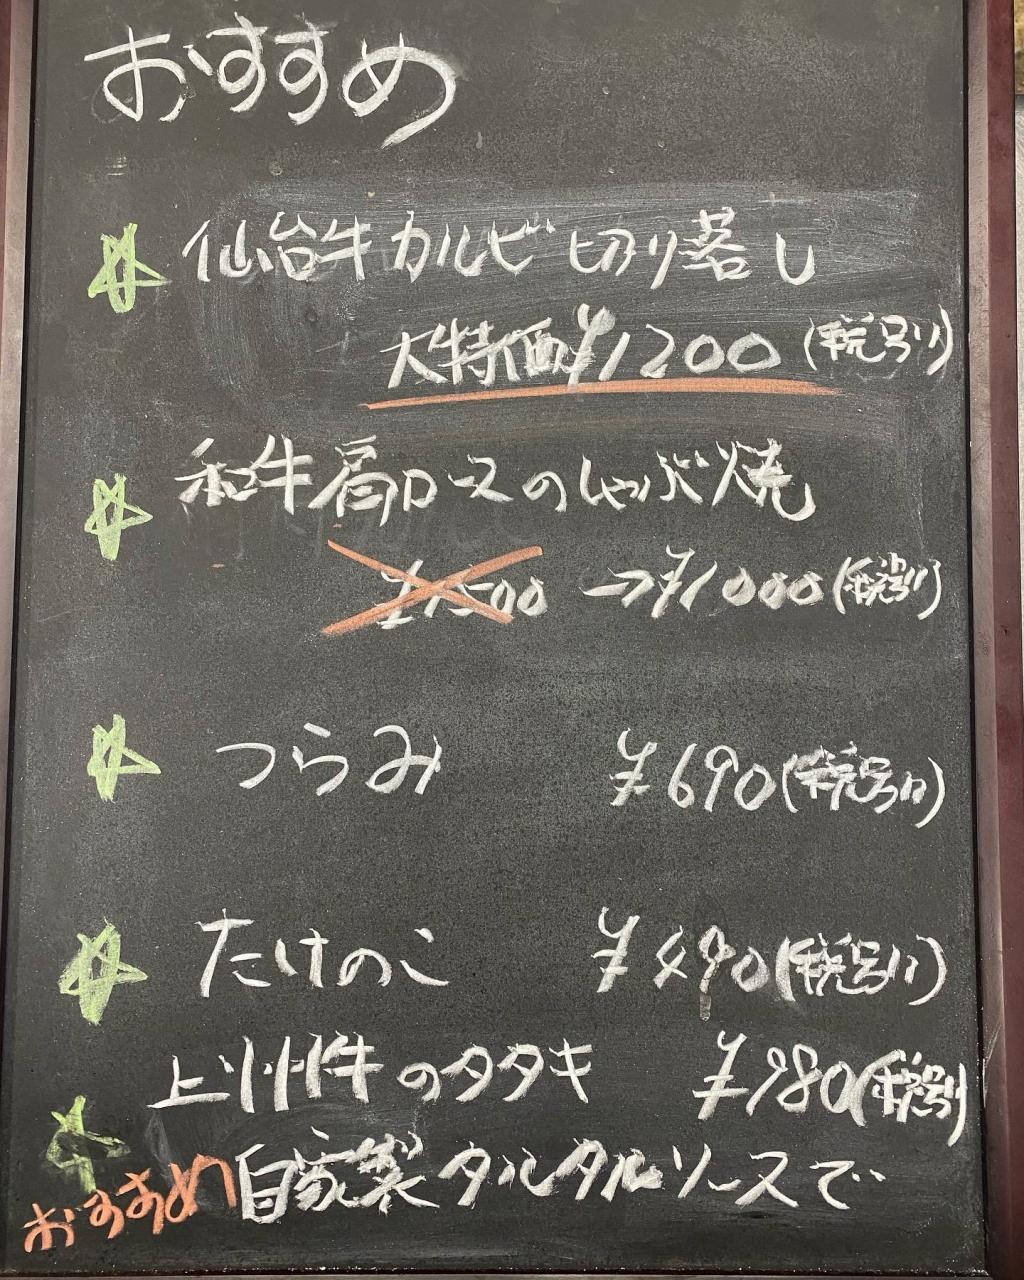 おすすめ
仙台牛カルビ切り落し
大特価¥1200(税別)
和牛肩ロースのしゃぶ焼
¥1500→¥1000(税別)
つらみ ¥690(税別)
たけのこ ¥490(税別)
上州牛のタタキ ¥980(税別)
おすすめ 自家製タルタルソースで